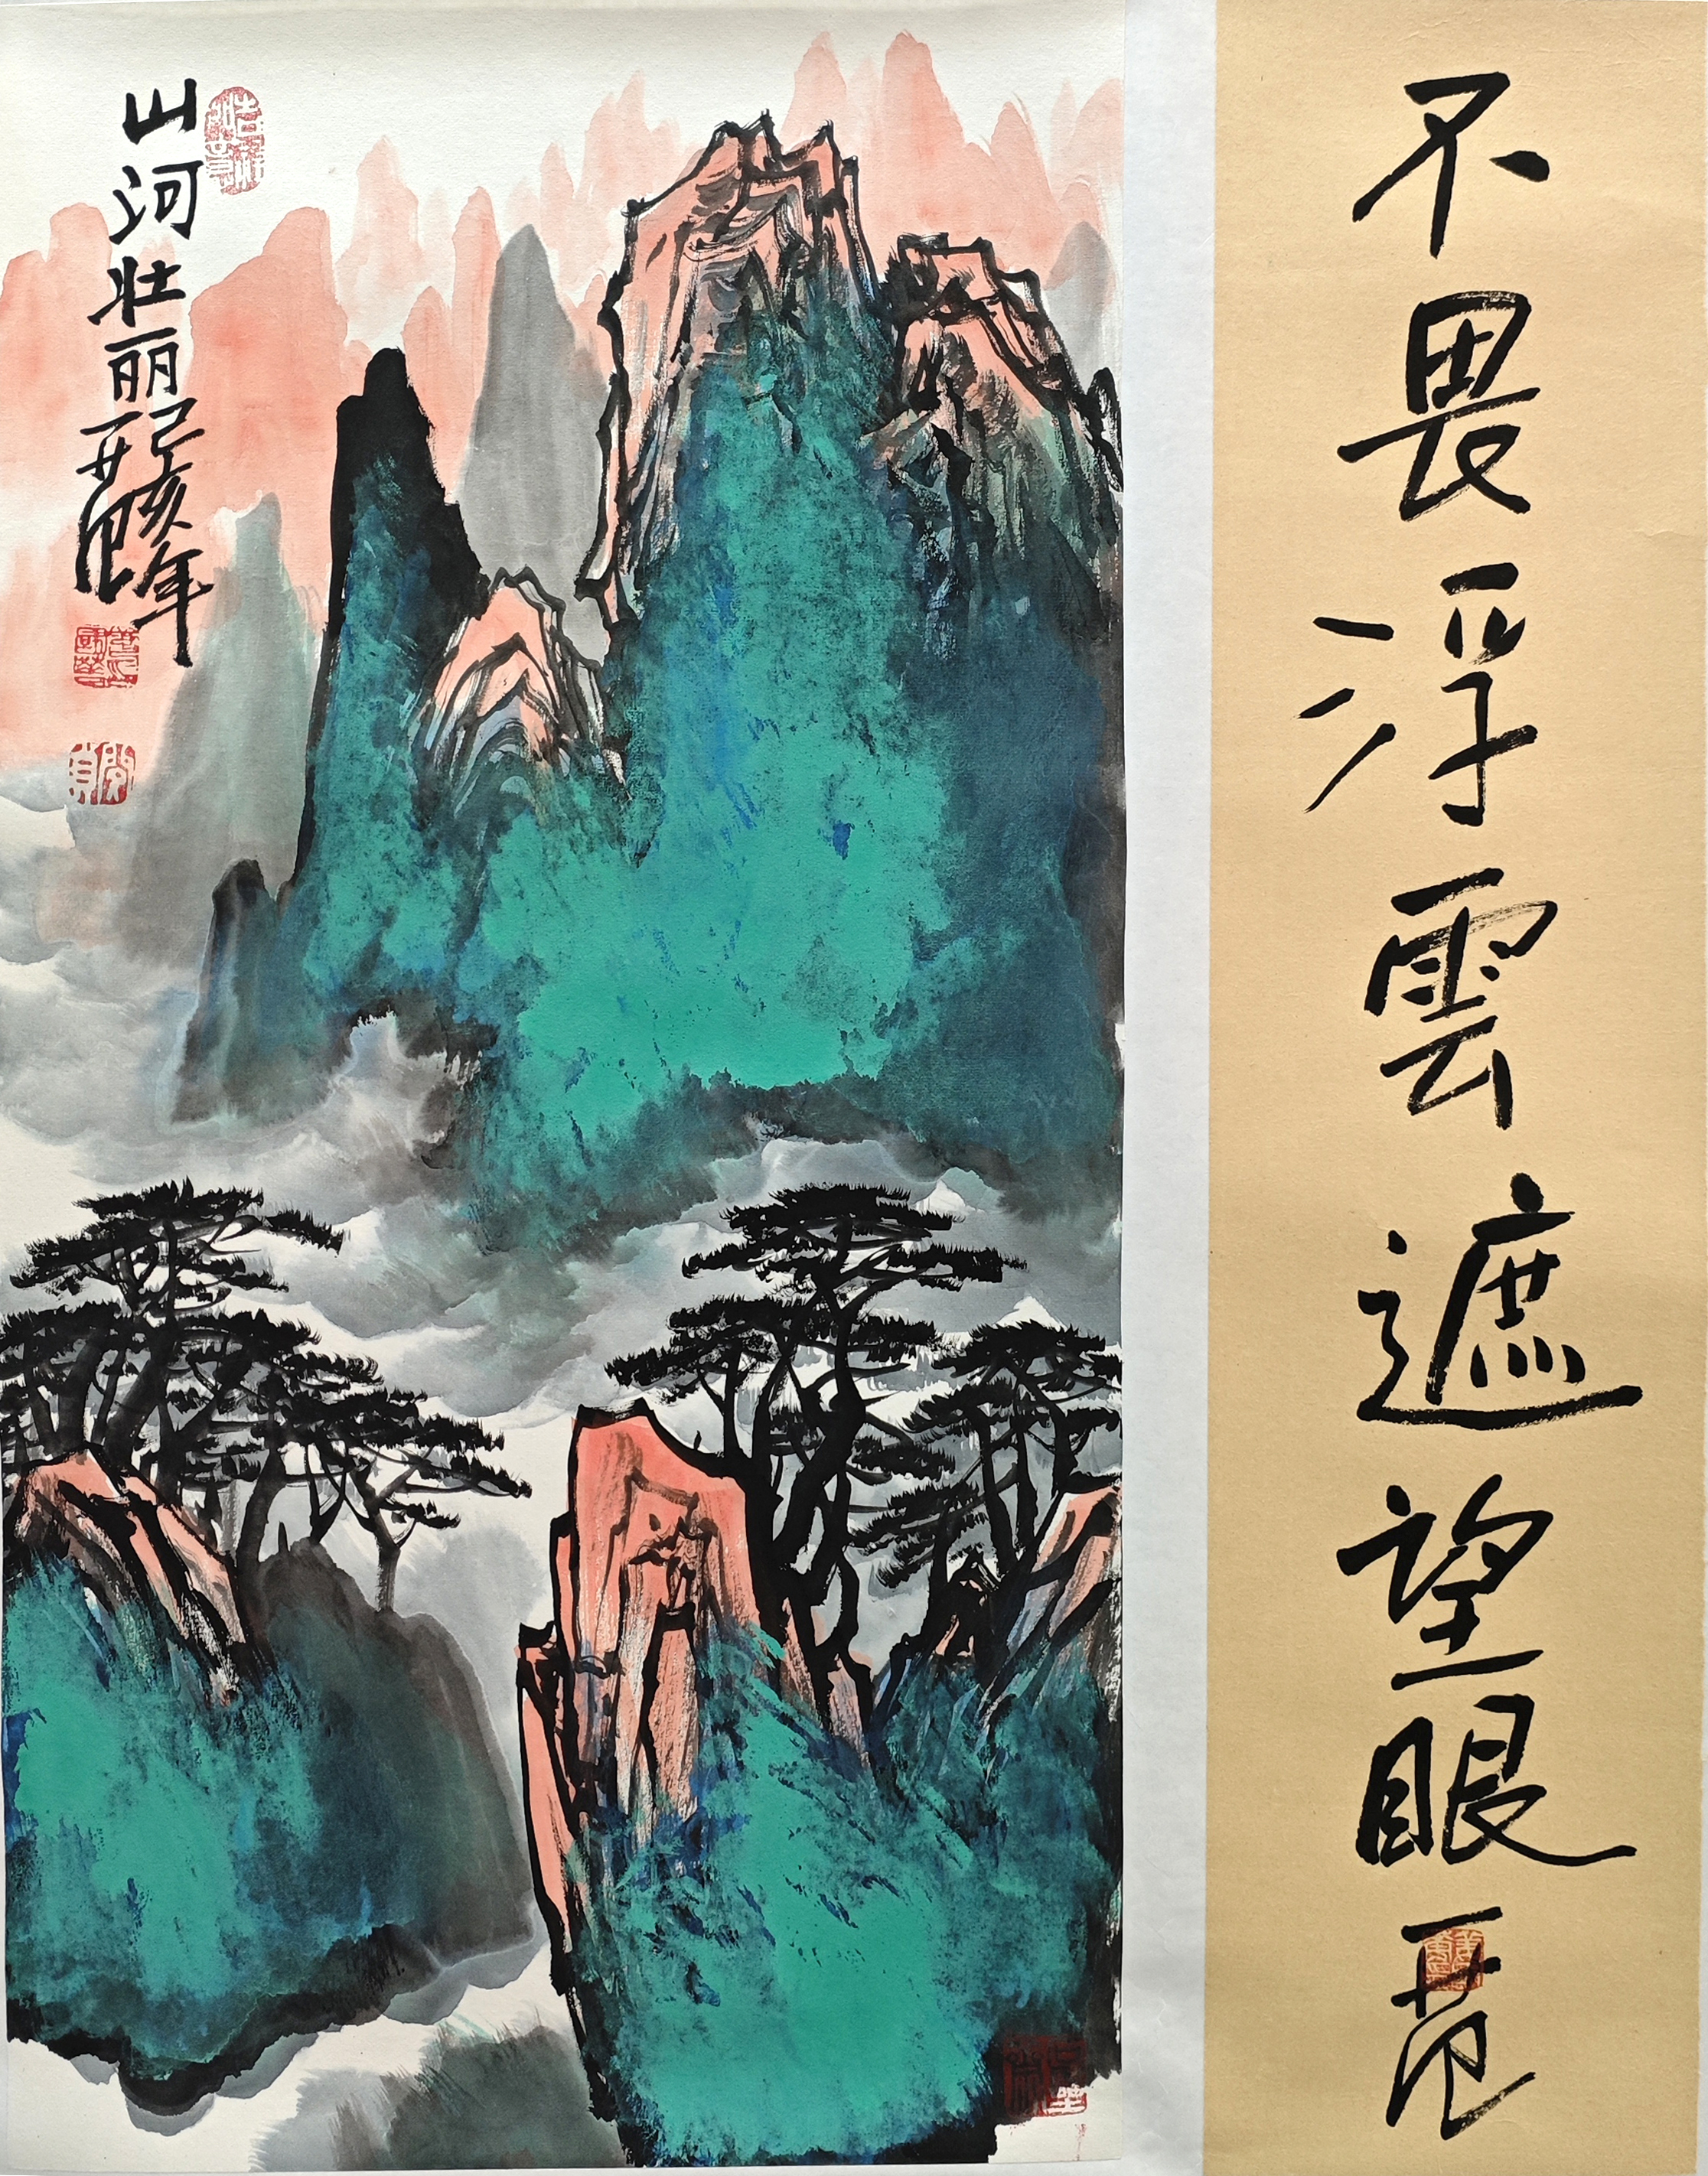 不畏浮雲遮望眼
山河壮丽
己亥年